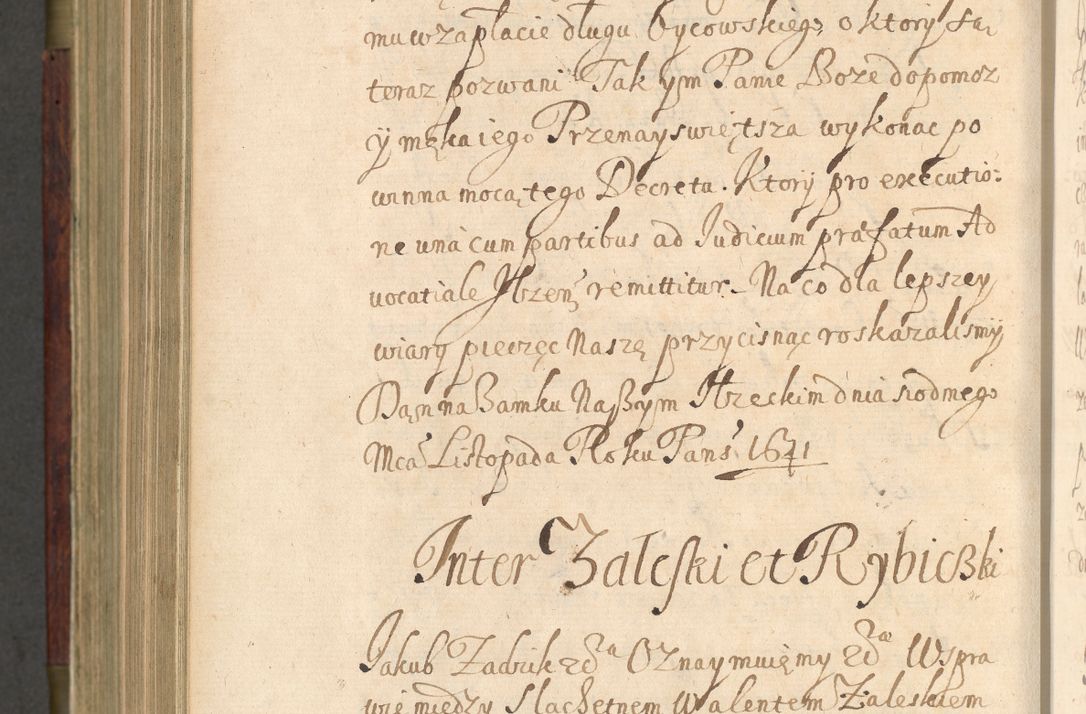 mu w zapłacie długu Oycowskieg° o ktory są
teraz pozwani Tak ym Panie Boze dopomoz
ÿ męka iego Przenayswiętsza wykonac po
winna mocą tego Decretu. Ktory pro executio:
ne una cum partibus ad Iudicium præfatum Ad
uocatiale Ilzen̄ remittitur. Na co dla lepszey
wiary pieczęc Naszą przycisnąc roskazalismy
Dąn na Zamku Naszym Ilzeckim dnia siodmeg°
Mca Listopada Roku Pans̄ 1641
Inter Zaleski et Rybiczki
Jakub Zadzik &c̄a Oznaymuięmy &c̄æ W spra
wie między Slachetnem Walentem Zaleskiem